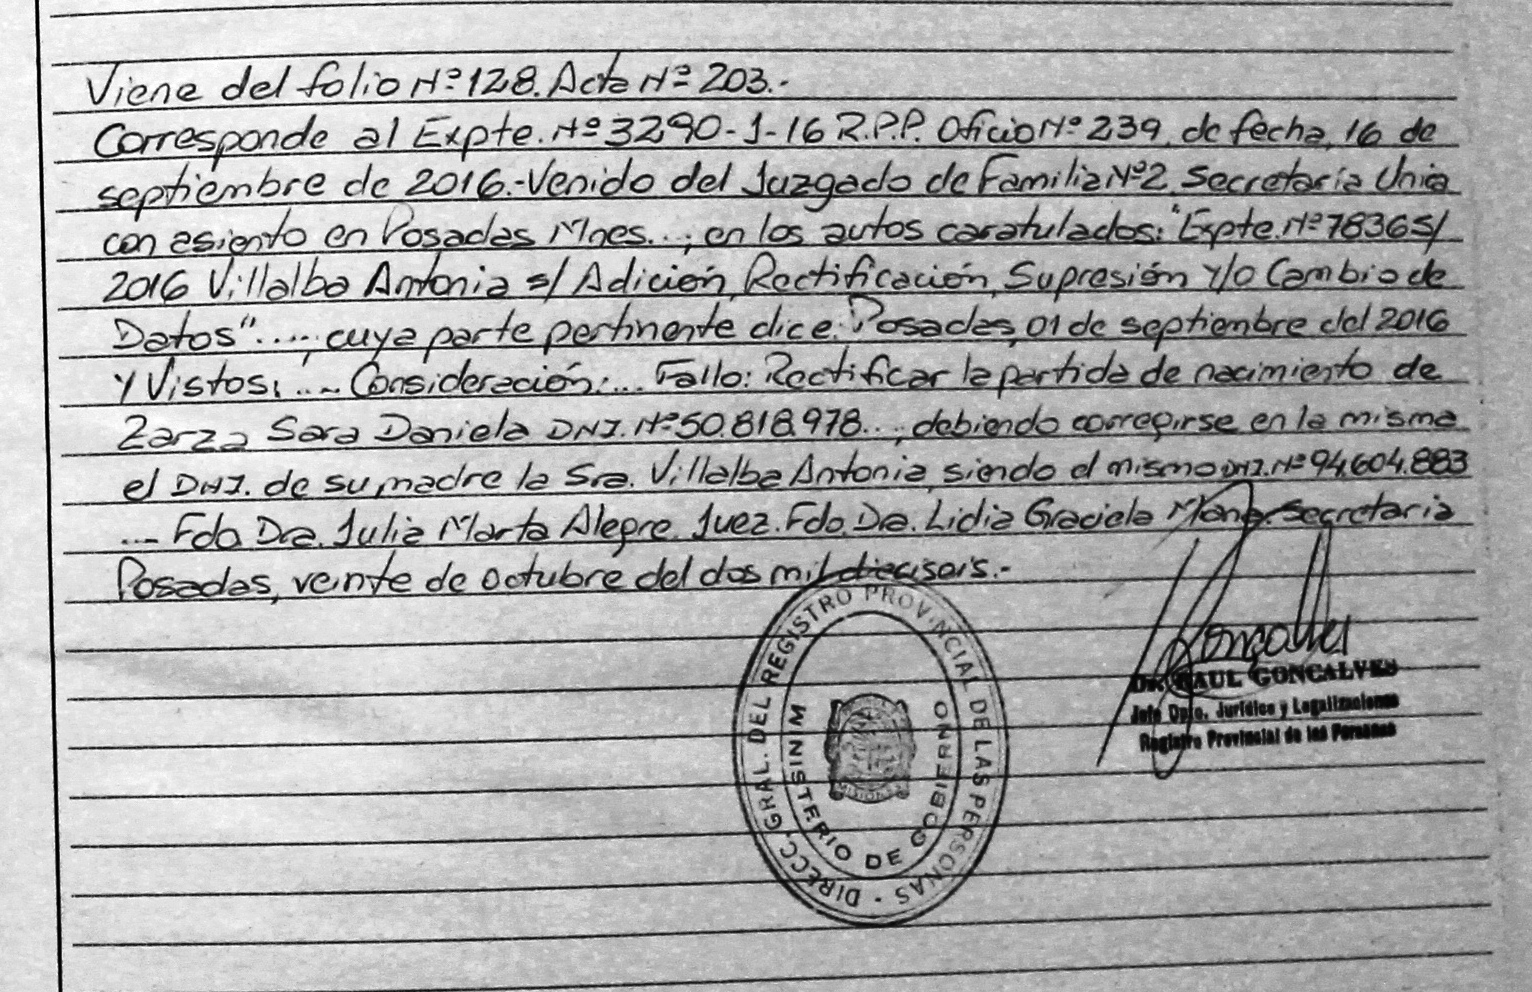 Viene del folio Nº 128. Acta Nº 203.-
Corresponde al Expte. Nº 3290-J-16 R.P.P. Oficio Nº 239, de fecha, 16 de
septiembre de 2016.-Venido del Juzgado de Familia Nº2, Secretaria Unica
con asiento en Posadas Mnes...; en los autos caratulados: "Expte. Nº 78365/
2016 Villalba Antonia s/ Adición, Rectificación, Supresión Y/O Cambio de
Datos"....., cuya parte pertinente dice: Posadas, 01 de septiembre del 2016
Y Vistos: .... Consideración:... Fallo: Rectificar la partida de nacimiento de
Zarza Sara Daniela DNI. Nº 50.818.978..., debiendo corregirse en la misma
el DNI. de su madre la Sra. Villalba Antonia, siendo el mismo DNI. Nº 94.604.883
.... Fdo. Dra. Julia Marta Alegre. Juez. Fdo. Dra. Lidia Graciela Secretaria
Posadas, veinte de octubre del dos mil dieciseis.-
DIRECC. GRAL. DEL REGISTRO PROVINCIAL DE LAS PERSONAS -
MINISTERIO DE GOBIERNO
MISIONES
Goncalves
Dr. RAUL GONCALVES
Jefe Dpto. Jurídico y Legalizaciones
Registro Provincial de las Personas